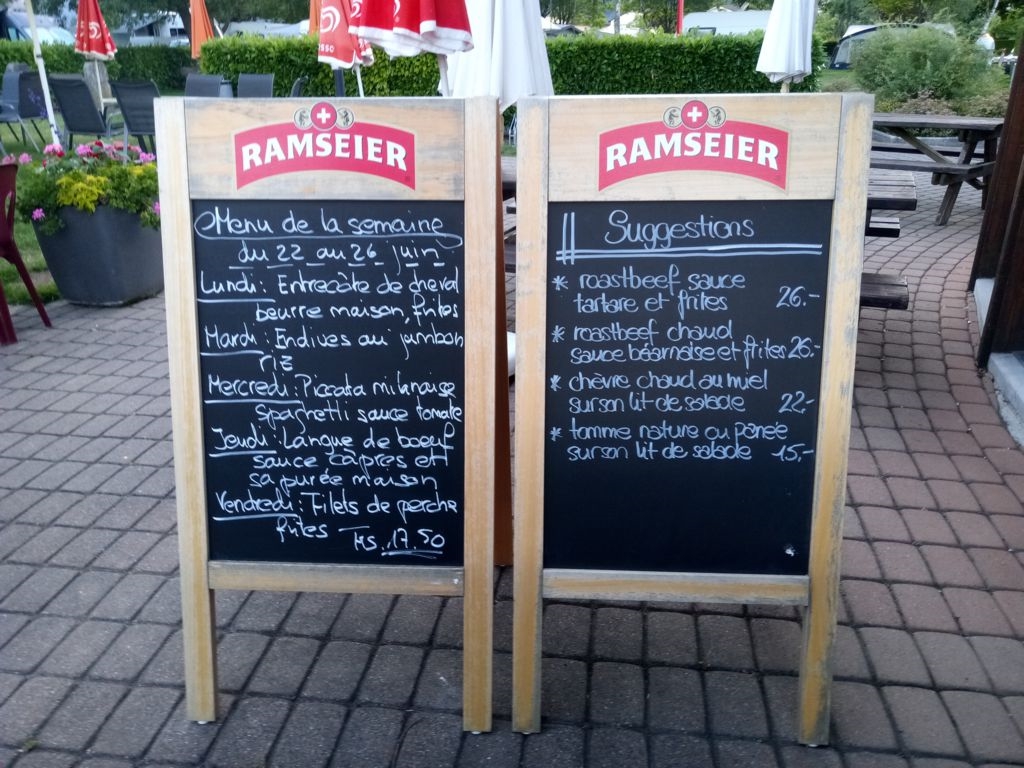 RAMSEIER
Menu de la semaine
du 22 au 26 juin
Lundi: Entrecôte de cheval
beurre maison, frites
Mardi: Endives au jambon
riz
Mercredi: Piccata milanaise
spaghetti sauce tomate
Jeudi: Langue de boeuf
sauce câpres et
sa purée maison
Vendredi: Filets de perche
frites Frs. 17.50
RAMSEIER
Suggestions
* roastbeef sauce
tartare et frites 26.-
* roastbeef chaud
sauce béarnaise et frites 26.-
* chèvre chaud au miel
sur son lit de salade 22.-
* tomme nature ou panée
sur son lit de salade 15.-